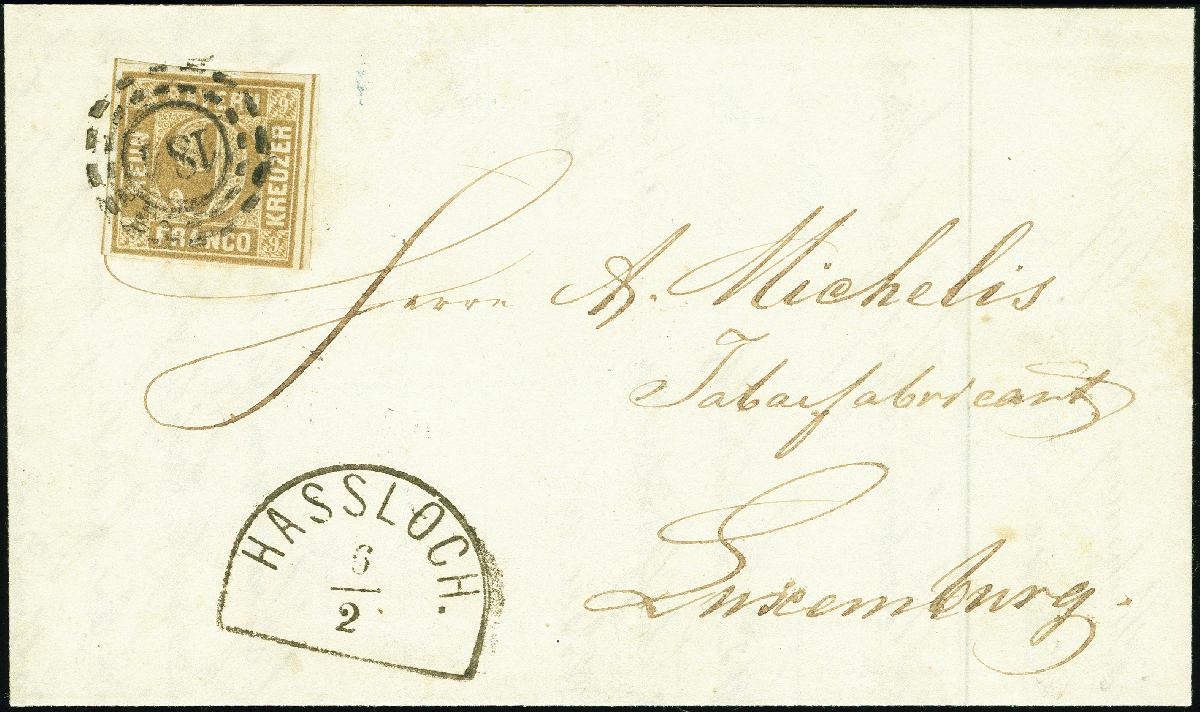 BAYERN
NEUN
KREUZER
FRANCO
9
9
Herrn A. Michelis
Tabacfabricant
Luxemburg.
HASSLOCH.
6
2